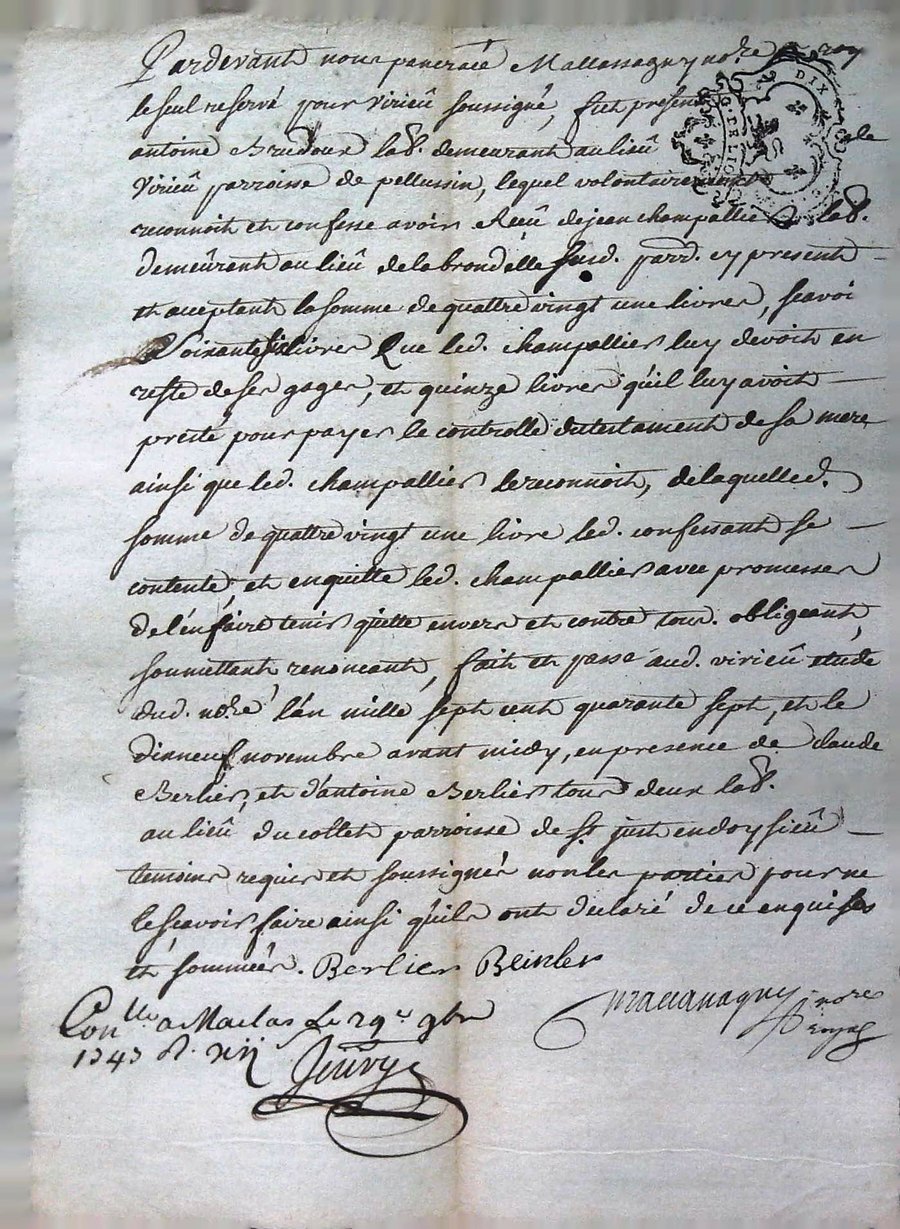 Pardevant nous pancrace Mallassagny no.re roy
le seul reservé pour virieû soussigné, fut présent
antoine Brudoux lab.r demeurant au lieû de
Virieû parroisse de pellussin, lequel volontairement
reconnoit et confesse avoir Reçû de jean champallier lab.r
demeûrent au lieû de la brondelle susd. parr. cy present
et acceptent la somme de quattre vingt une livres, scavoi
Soixante six livres Que led. champallier luy devoit en
reste de ses gages, et quinze livres qu'il luy avoit
preité pour payer le controlle du testament de sa mere
ainsi que led. champallier le reconnoit, de laquelle d.
somme de quattre vingt une livre led. confessant se
contente, et en quitte led. champallier avec promesses
de l'en faire tenir quitte envers et contre tous. obligeant,
soumettant renoncant, fait et passé aud. virieû etude
dud. no.re l'an mille sept cent quarante sept, et le
dixneuf novembre avant midy, en presence de claude
Berlier, et d'antoine Berlier tous deux lab.r
au lieû du collet parroisse de St just en doysieû
temoins requis et soussignés non les parties pour ne
le scavoir faire ainsi qu'ils ont declaré de ce enquises
et sommées. Berlier Beirler
Mallassagny no.re
royal
Con.lle a Maclas Le 29.e 9bre
1747 R. xij
DIX
G. DE LION